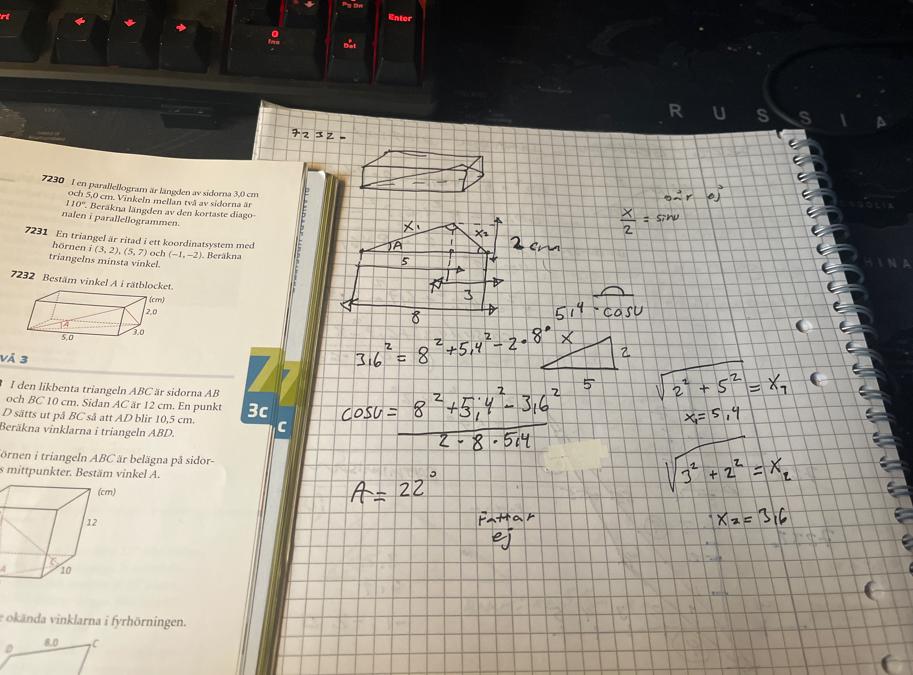 Enter
Pg Dn
0
Ins
Del
RUSSIA
HINA
7230 I en parallellogram är längden av sidorna 3,0 cm
och 5,0 cm. Vinkeln mellan två av sidorna är
110°. Beräkna längden av den kortaste diago-
nalen i parallellogrammen.
7231 En triangel är ritad i ett koordinatsystem med
hörnen i (3, 2), (5, 7) och (−1, −2). Beräkna
triangelns minsta vinkel.
7232 Bestäm vinkel A i rätblocket.
(cm)
2,0
A
3,0
5,0
VÅ 3
I den likbenta triangeln ABC är sidorna AB
och BC 10 cm. Sidan AC är 12 cm. En punkt
D sätts ut på BC så att AD blir 10,5 cm.
Beräkna vinklarna i triangeln ABD.
örnen i triangeln ABC är belägna på sidor-
s mittpunkter. Bestäm vinkel A.
(cm)
12
10
A
e okända vinklarna i fyrhörningen.
D 8,0 C
7
3c
C
7232-
X₁
X₂
A
5
2 cm
3
8
går ej
x/2 = sinv
5,4 · cosv
3,6² = 8² + 5,4² - 2 · 8 ·
X
2
5
cosv = 8² + 5,4² - 3,6²
2 · 8 · 5,4
A = 22°
Fattar
ej
√2² + 5² = X₁
x₁ = 5,4
√3² + 2² = X₂
X₂ = 3,6